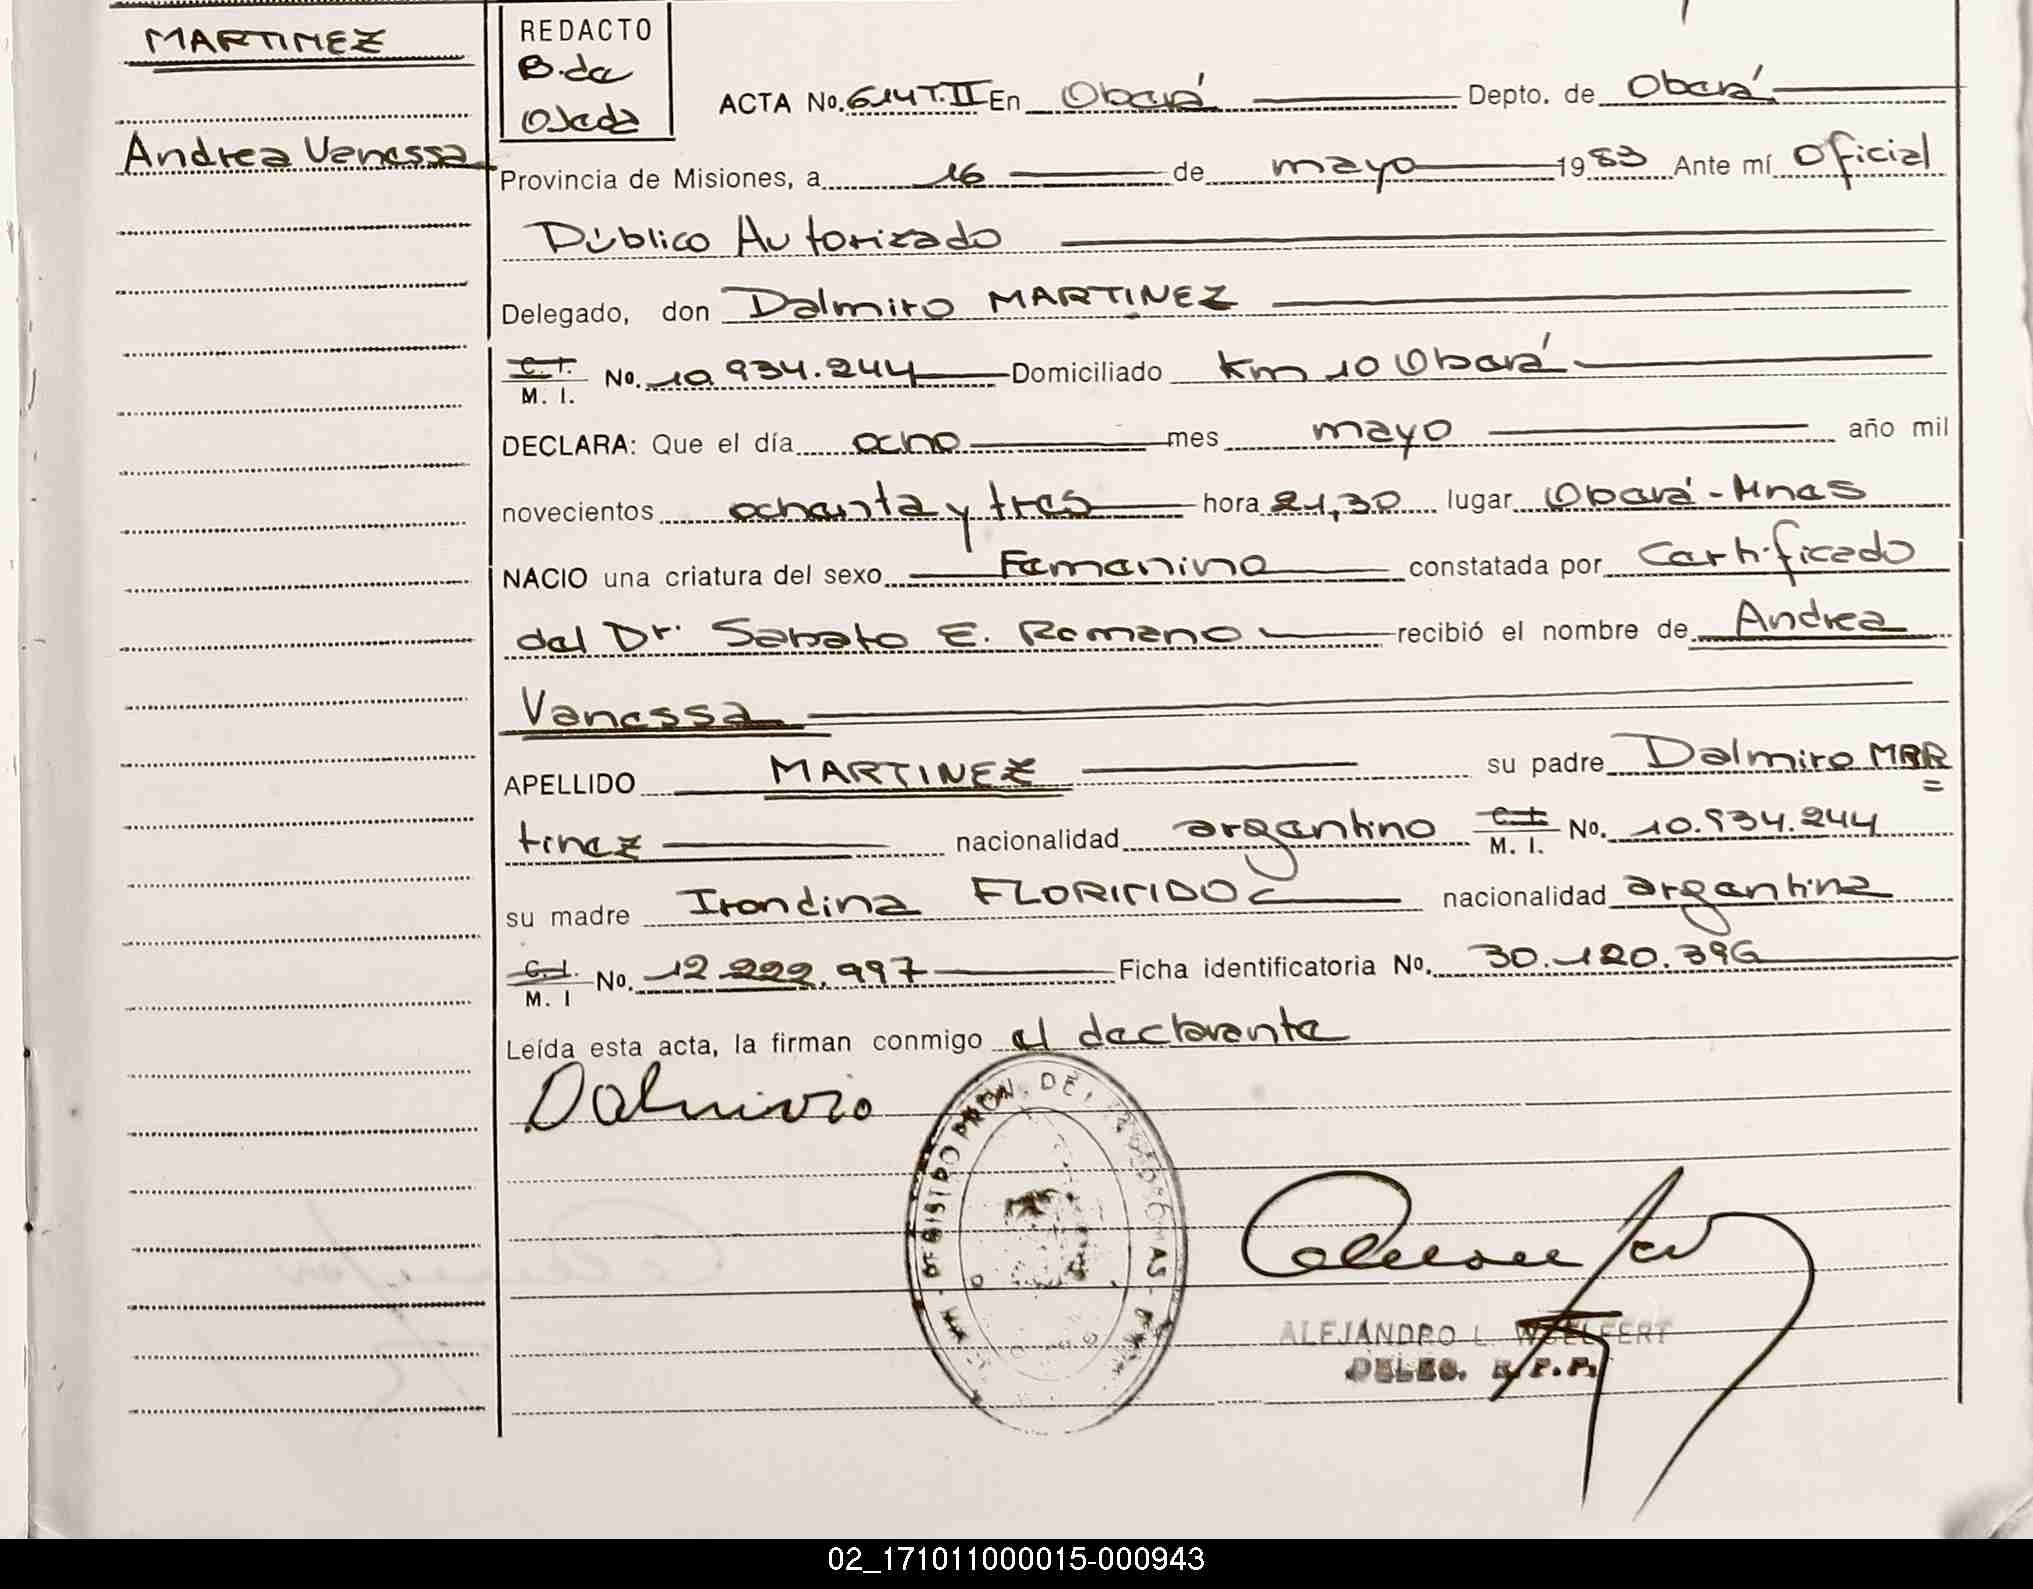 MARTINEZ
Andrea Vanessa
REDACTO
B. de
Ojeda
ACTA No. 614 T. II En Oberá Depto. de Oberá
Provincia de Misiones, a 16 de mayo 1983 Ante mí Oficial
Público Autorizado
Delegado, don Dalmiro MARTINEZ
C. I. M. I. No. 10.934.244 Domiciliado Km 10 Oberá
DECLARA: Que el día ocho mes mayo año mil
novecientos ochenta y tres hora 21,30 lugar Oberá - Mnes
NACIO una criatura del sexo Femenino constatada por Certificado
del Dr. Sabato E. Romano recibió el nombre de Andrea
Vanessa
APELLIDO MARTINEZ su padre Dalmiro MAR=
tinez nacionalidad argentino C. I. M. I. No. 10.934.244
su madre Irondina nacionalidad argentina
C. I. M. I No. 12.222.997 Ficha identificatoria No. 30.120.396
Leída esta acta, la firman conmigo el declarante
Dalmiro
ALEJANDRO L. WOELFERT
DELEG. R.P.P.
02_171011000015-000943